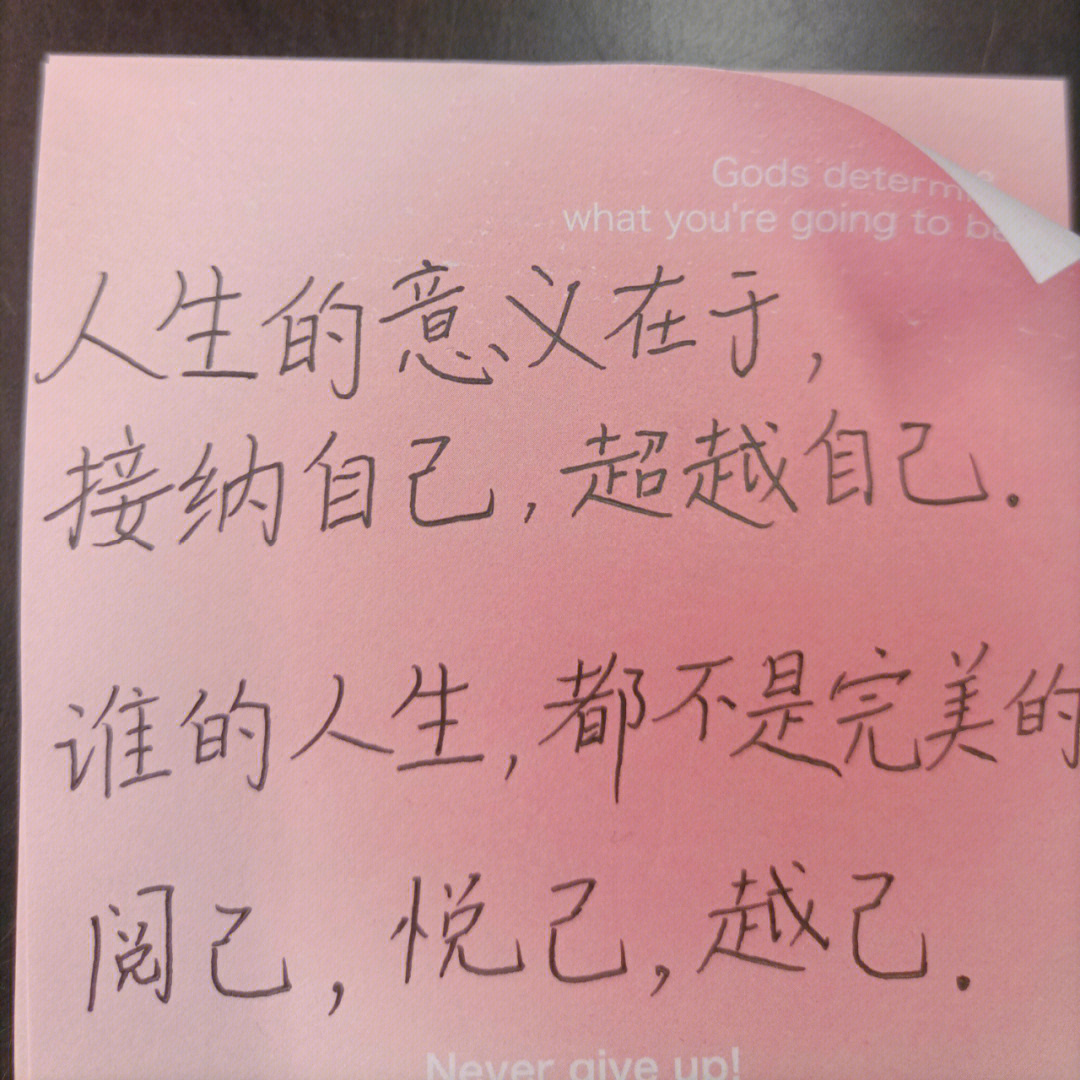 Gods determi
what you're going to be
人生的意义在于,
接纳自己,超越自己.
谁的人生,都不是完美的
阅己,悦己,越己.
Never give up!